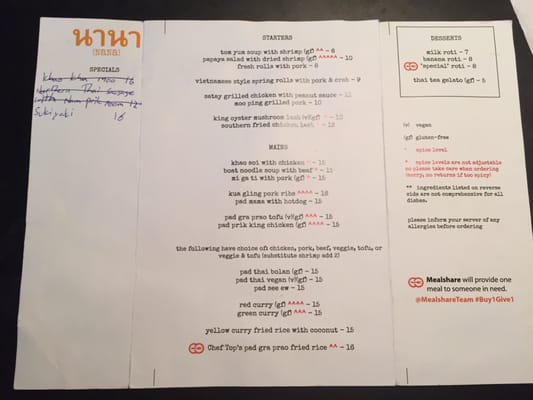 นานา
(NANA)
SPECIALS
khao kha moo 16
Northern Thai Sausage
with Nam prik noom 12
Sukiyaki 16
STARTERS
tom yum soup with shrimp (gf) ^^ - 6
papaya salad with dried shrimp (gf) ^^^^^ - 10
fresh rolls with pork - 8
vietnamese style spring rolls with pork & crab - 9
satay grilled chicken with peanut sauce - 11
moo ping grilled pork - 10
king oyster mushroom laab (v)(gf) ^ - 10
southern fried chicken laab ^ - 12
MAINS
khao soi with chicken ^ - 15
boat noodle soup with beef ^ - 15
mi ga ti with pork (gf) ^ - 15
kua gling pork ribs ^^^^ - 16
pad mama with hotdog - 15
pad gra prao tofu (v)(gf) ^^^ - 15
pad prik king chicken (gf) ^^^^ - 15
the following have choice of: chicken, pork, beef, veggie, tofu, or
veggie & tofu (substitute shrimp add 2)
pad thai bolan (gf) - 15
pad thai vegan (v)(gf) - 15
pad see ew - 15
red curry (gf) ^^^^ - 15
green curry (gf) ^^^ - 15
yellow curry fried rice with coconut - 15
Chef Top's pad gra prao fried rice ^^ - 16
DESSERTS
milk roti - 7
banana roti - 8
'special' roti - 8
thai tea gelato (gf) - 5
(v) vegan
(gf) gluten-free
^ spice level
* spice levels are not adjustable
so please take care when ordering
(sorry, no returns if too spicy)
** ingredients listed on reverse
side are not comprehensive for all
dishes.
please inform your server of any
allergies before ordering
Mealshare will provide one
meal to someone in need.
@MealshareTeam #Buy1Give1